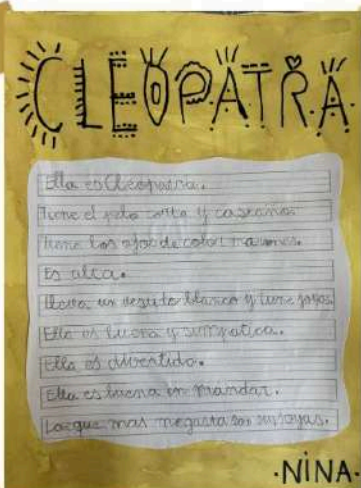 CLEOPATRA
Ella es Cleopatra.
Tiene el pelo corto y castaño.
Tiene los ojos de color marones.
Es alta.
Lleva un vestido blanco y tiene joyas.
Ella es buena y simpatica.
Ella es divertida.
Ella es buena en mandar.
Lo que mas me gusta son sus joyas.
·NINA·